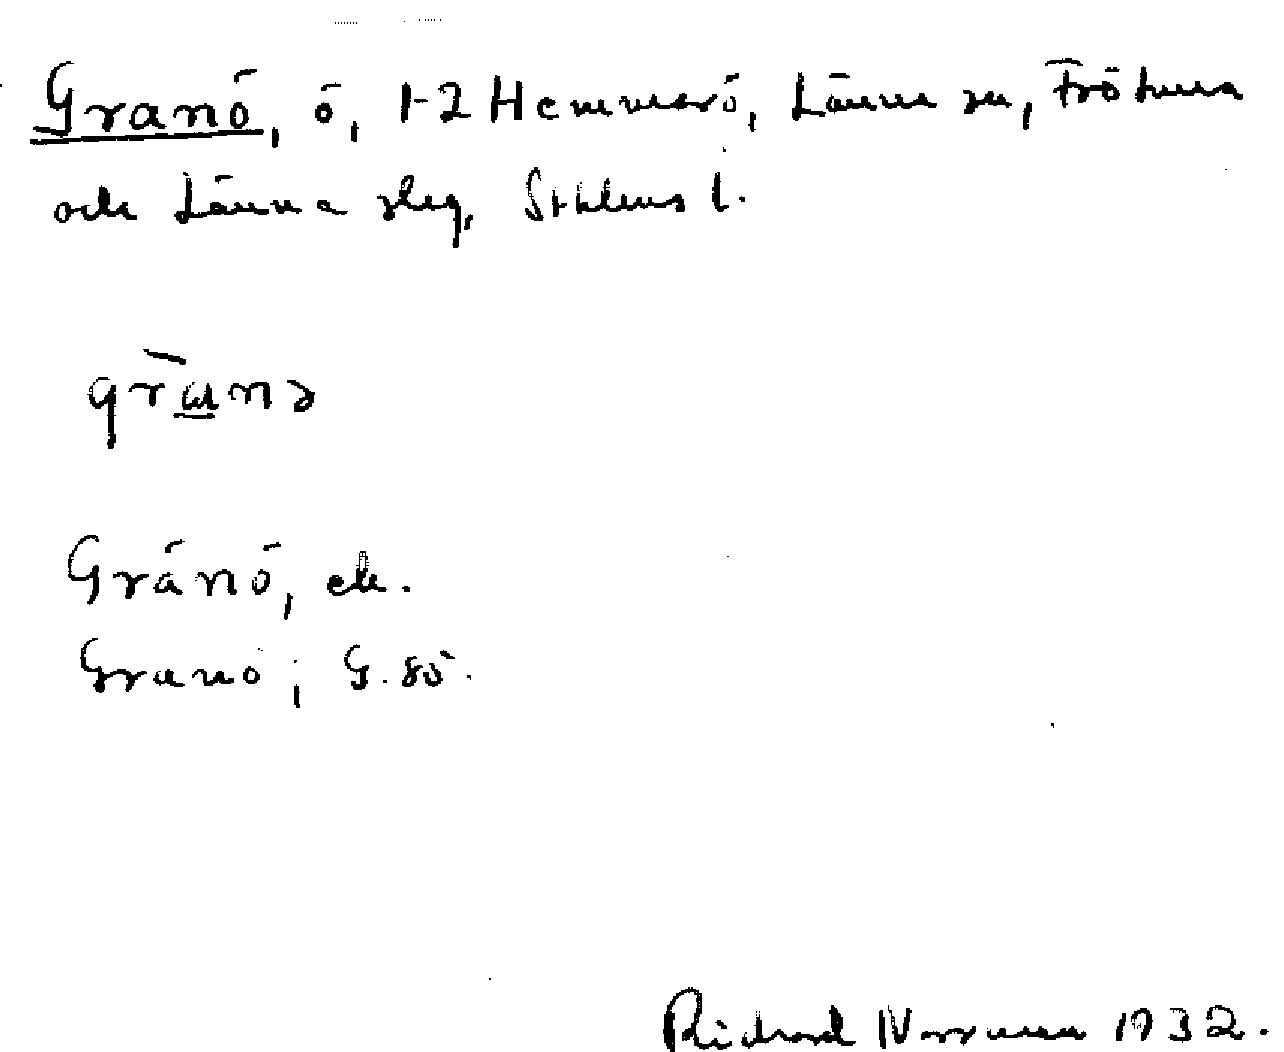 Granö, ö, 1-2 Hemmarö, Länna sn, Frötuna
och Länna slg, Sthlms l.
Gränö, ek.
Granö; G. sö.
Richard Norrman 1932.